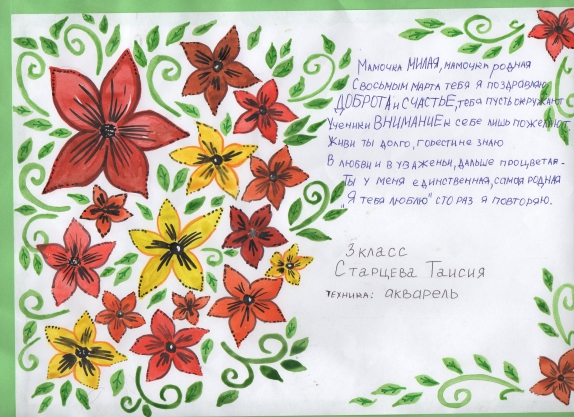 Мамочка МИЛАЯ, мамочка родная
С восьмым марта тебя я поздравляю
ДОБРОТА и СЧАСТЬЕ, тебя пусть окружают
Ученики ВНИМАНИЕ к себе лишь пожелают
Живи ты долго, горести не знаю
В любви и в уваженьи, дальше процветая-
Ты у меня единственная, самая родная
„Я тебя люблю" сто раз я повторяю.
3 класс
Старцева Таисия
техника: акварель